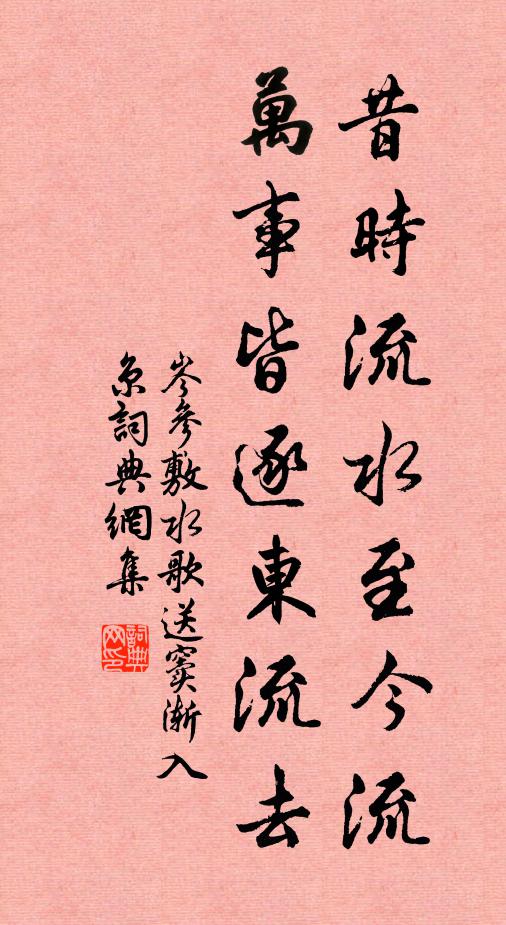 昔時流水至今流
萬事皆逐東流去
岑參敷水歌送竇漸入
京詞典網集
詞典網印